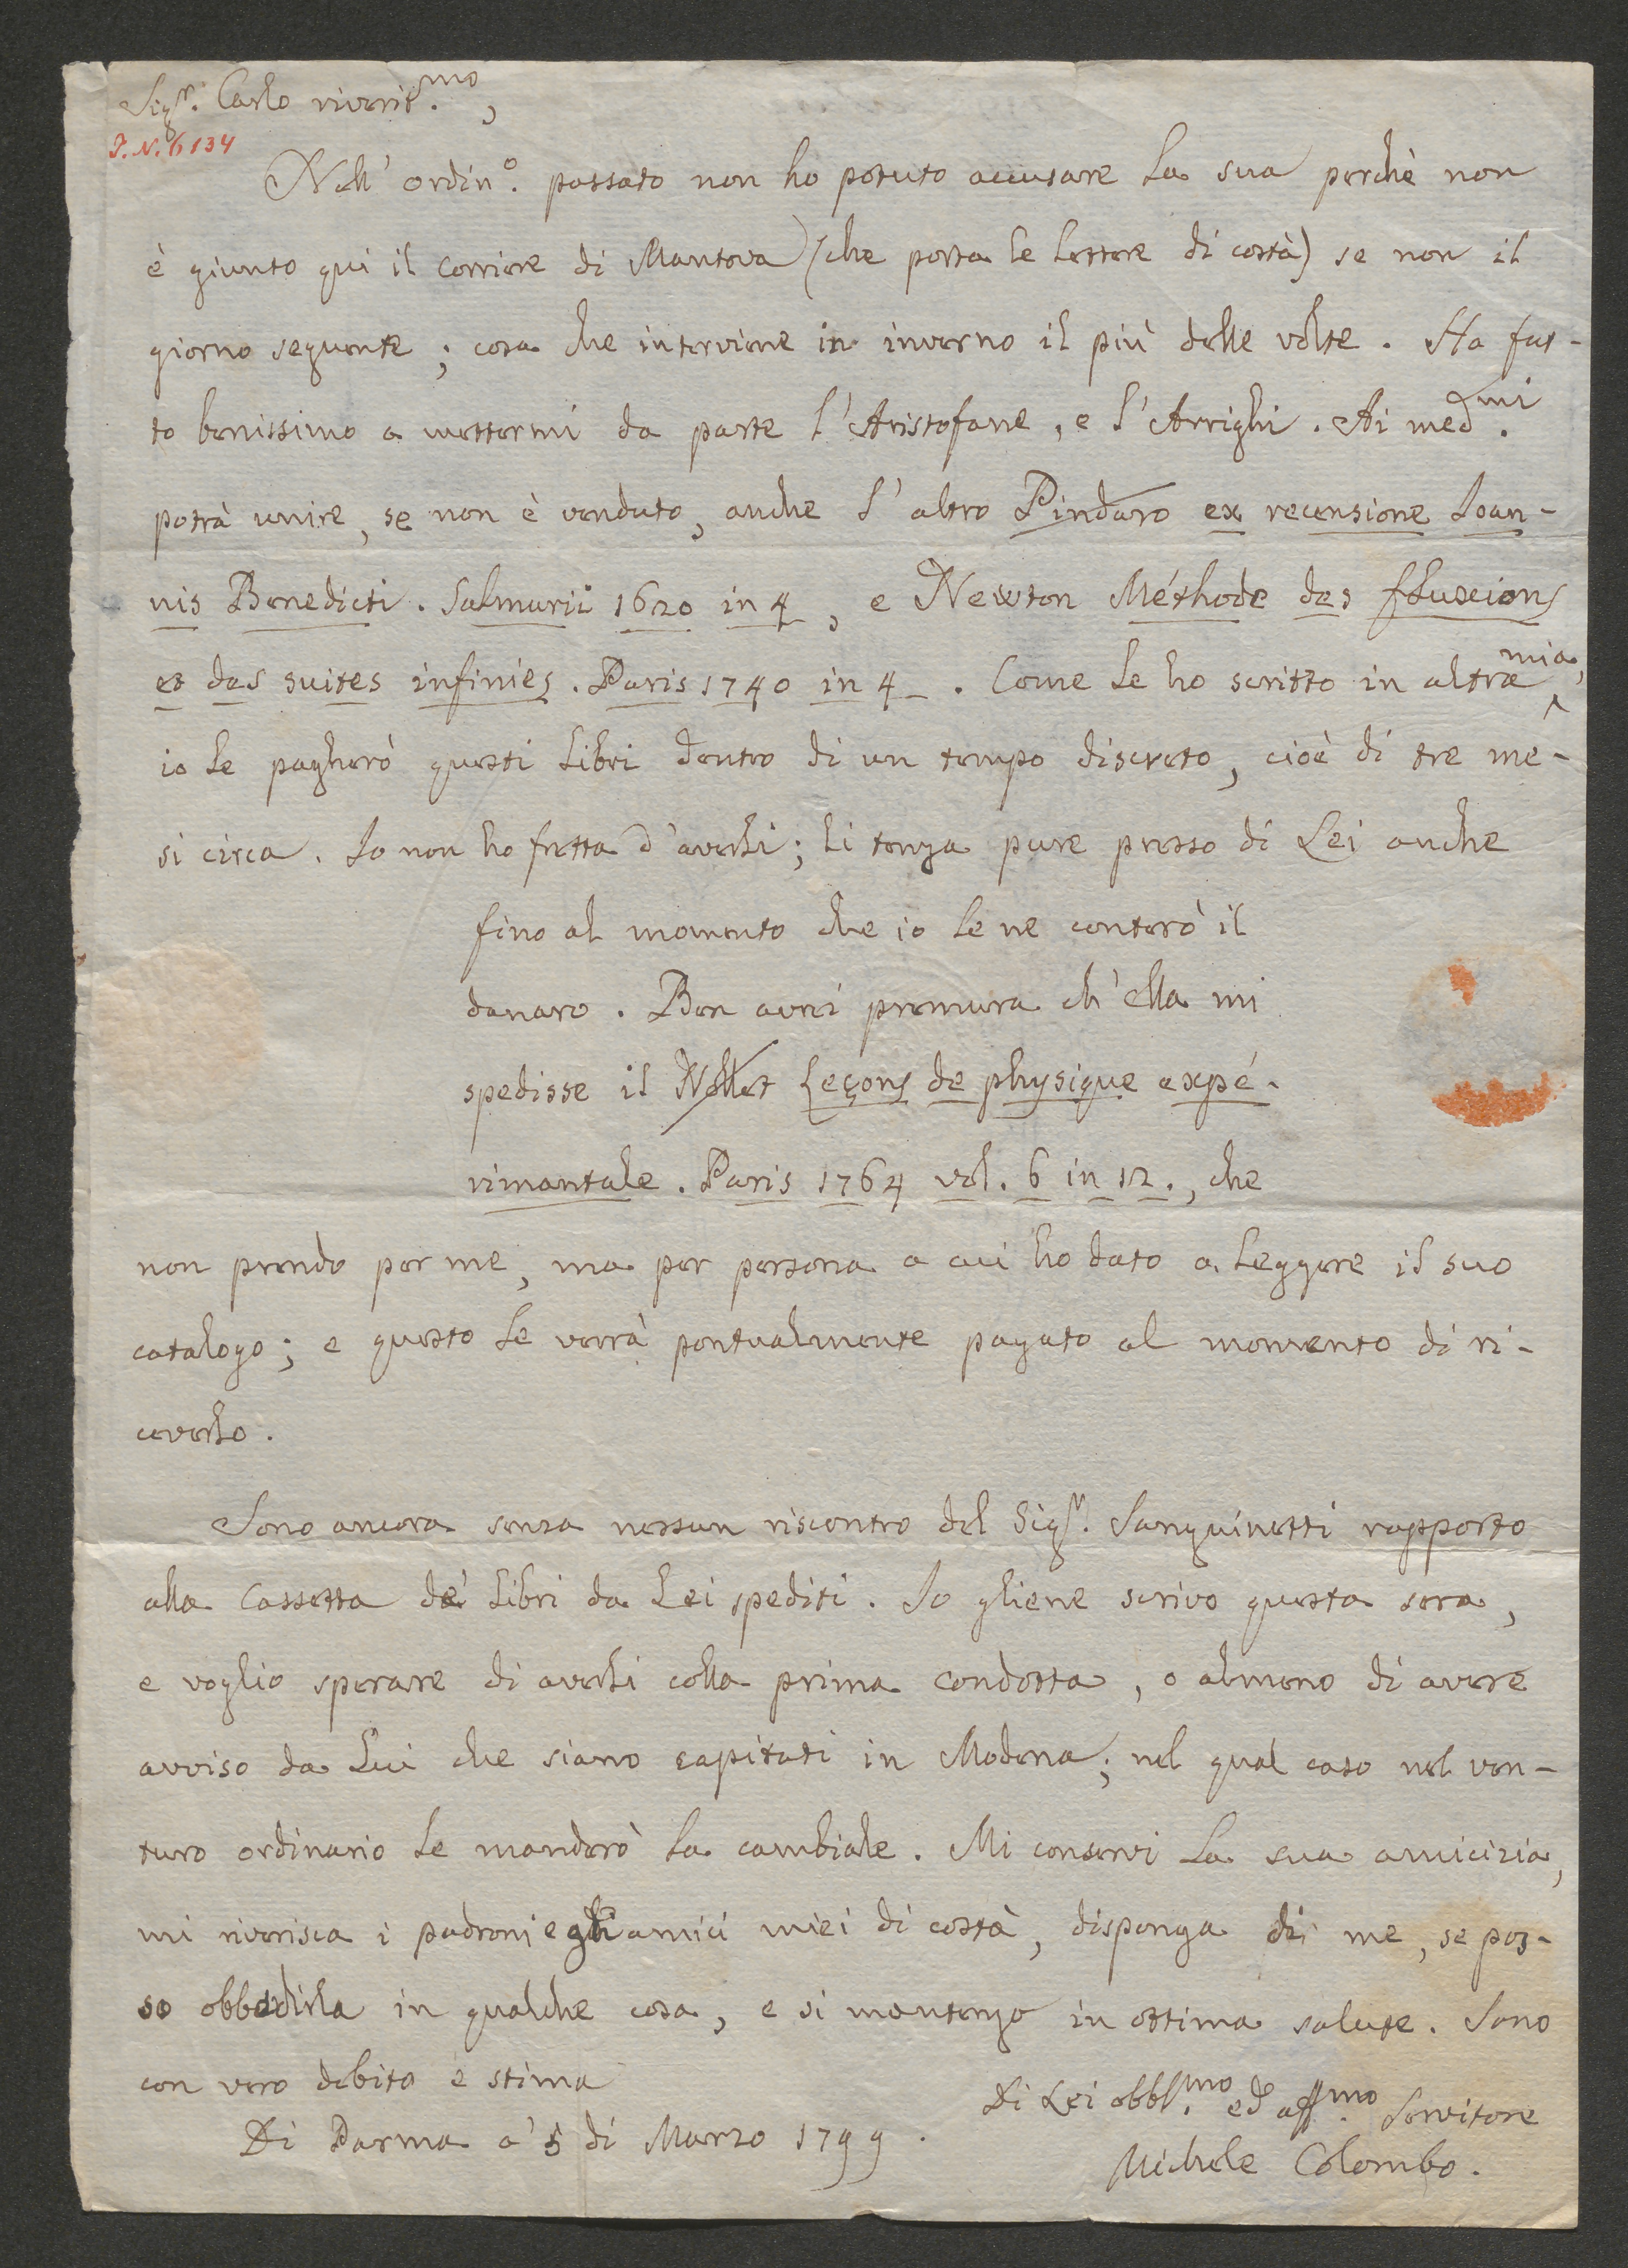 Sigr. Carlo riverit.mo,
I.N. 6134
Nell' ordin.o passato non ho potuto accusare la sua perchè non
è giunto qui il corriere di Mantova (che porta le lettere di costà) se non il
giorno seguente; cosa che interviene in inverno il più delle volte. Ha fat-
to benissimo a mettermi da parte l'Aristofane, e l'Arrighi. Ai med.mi
potrà unire, se non è venduto, anche l'altro Pindaro ex recensione Ioan-
nis Benedicti. Salmurii 1620 in 4, e Newton Méthode des fluxions
et des suites infinies. Paris 1740 in 4. Come le ho scritto in altra mia,
io le pagherò questi libri dentro di un tempo discreto, cioè di tre me-
si circa. Io non ho fretta d'averli; li tenga pure presso di Lei anche
fino al momento che io le ne conterò il
danaro. Ben avrei premura ch'ella mi
spedisse il Nollet Leçons de physique expé-
rimentale. Paris 1764 vol. 6 in 12., che
non prendo per me, ma per persona a cui ho dato a leggere il suo
catalogo; e questo le verrà pontualmente pagato al momento di ri-
ceverlo.
Sono ancora senza nessun riscontro del Sigr. Sanguinetti rapporto
alla cassetta de' libri da Lei spediti. Io gliene scrivo questa sera,
e voglio sperare di averli colla prima condotta, o almeno di avere
avviso da Lui che siano capitati in Modena; nel qual caso nel ven-
turo ordinario le manderò la cambiale. Mi conservi la sua amicizia,
mi riverisca i padroni e gli amici miei di costà, disponga di me, se pos-
so obbedirla in qualche cosa, e si mantenga in ottima salute. Sono
con vero debito e stima
Di Lei obbl.mo ed aff.mo Servitore
Di Parma a' 5 di Marzo 1799.
Michele Colombo.